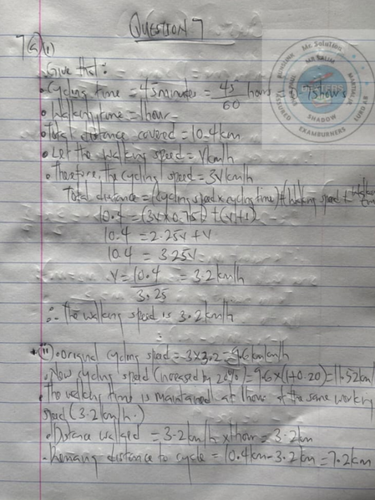 QUESTION 7
7(a)(i)
Give that:
• Cycling time = 45 minutes = 45/60 hours = 0.75 hours
• Walking time = 1 hour
• Total distance covered = 10.4km
• Let the walking speed = Vkm/h
• Therefore, the cycling speed = 3Vkm/h
Total distance = (cycling speed x cycling time) + (walking speed x
10.4 = (3V x 0.75) + (V x 1)
10.4 = 2.25V + V
10.4 = 3.25V
V = 10.4/3.25 = 3.2km/h
∴ The walking speed is 3.2km/h
(ii) • Original cycling speed = 3 x 3.2 = 9.6km/h
• New cycling speed (increased by 20%) = 9.6 x (1+0.20) = 11.52km/h
• The walking time is maintained at 1 hour at the same
speed (3.2km/h.)
• Distance walked = 3.2km/h x 1 hour = 3.2km
• Remaining distance to cycle = 10.4km - 3.2km = 7.2km
Mr Solution
SHADOW
EXAMBURNERS